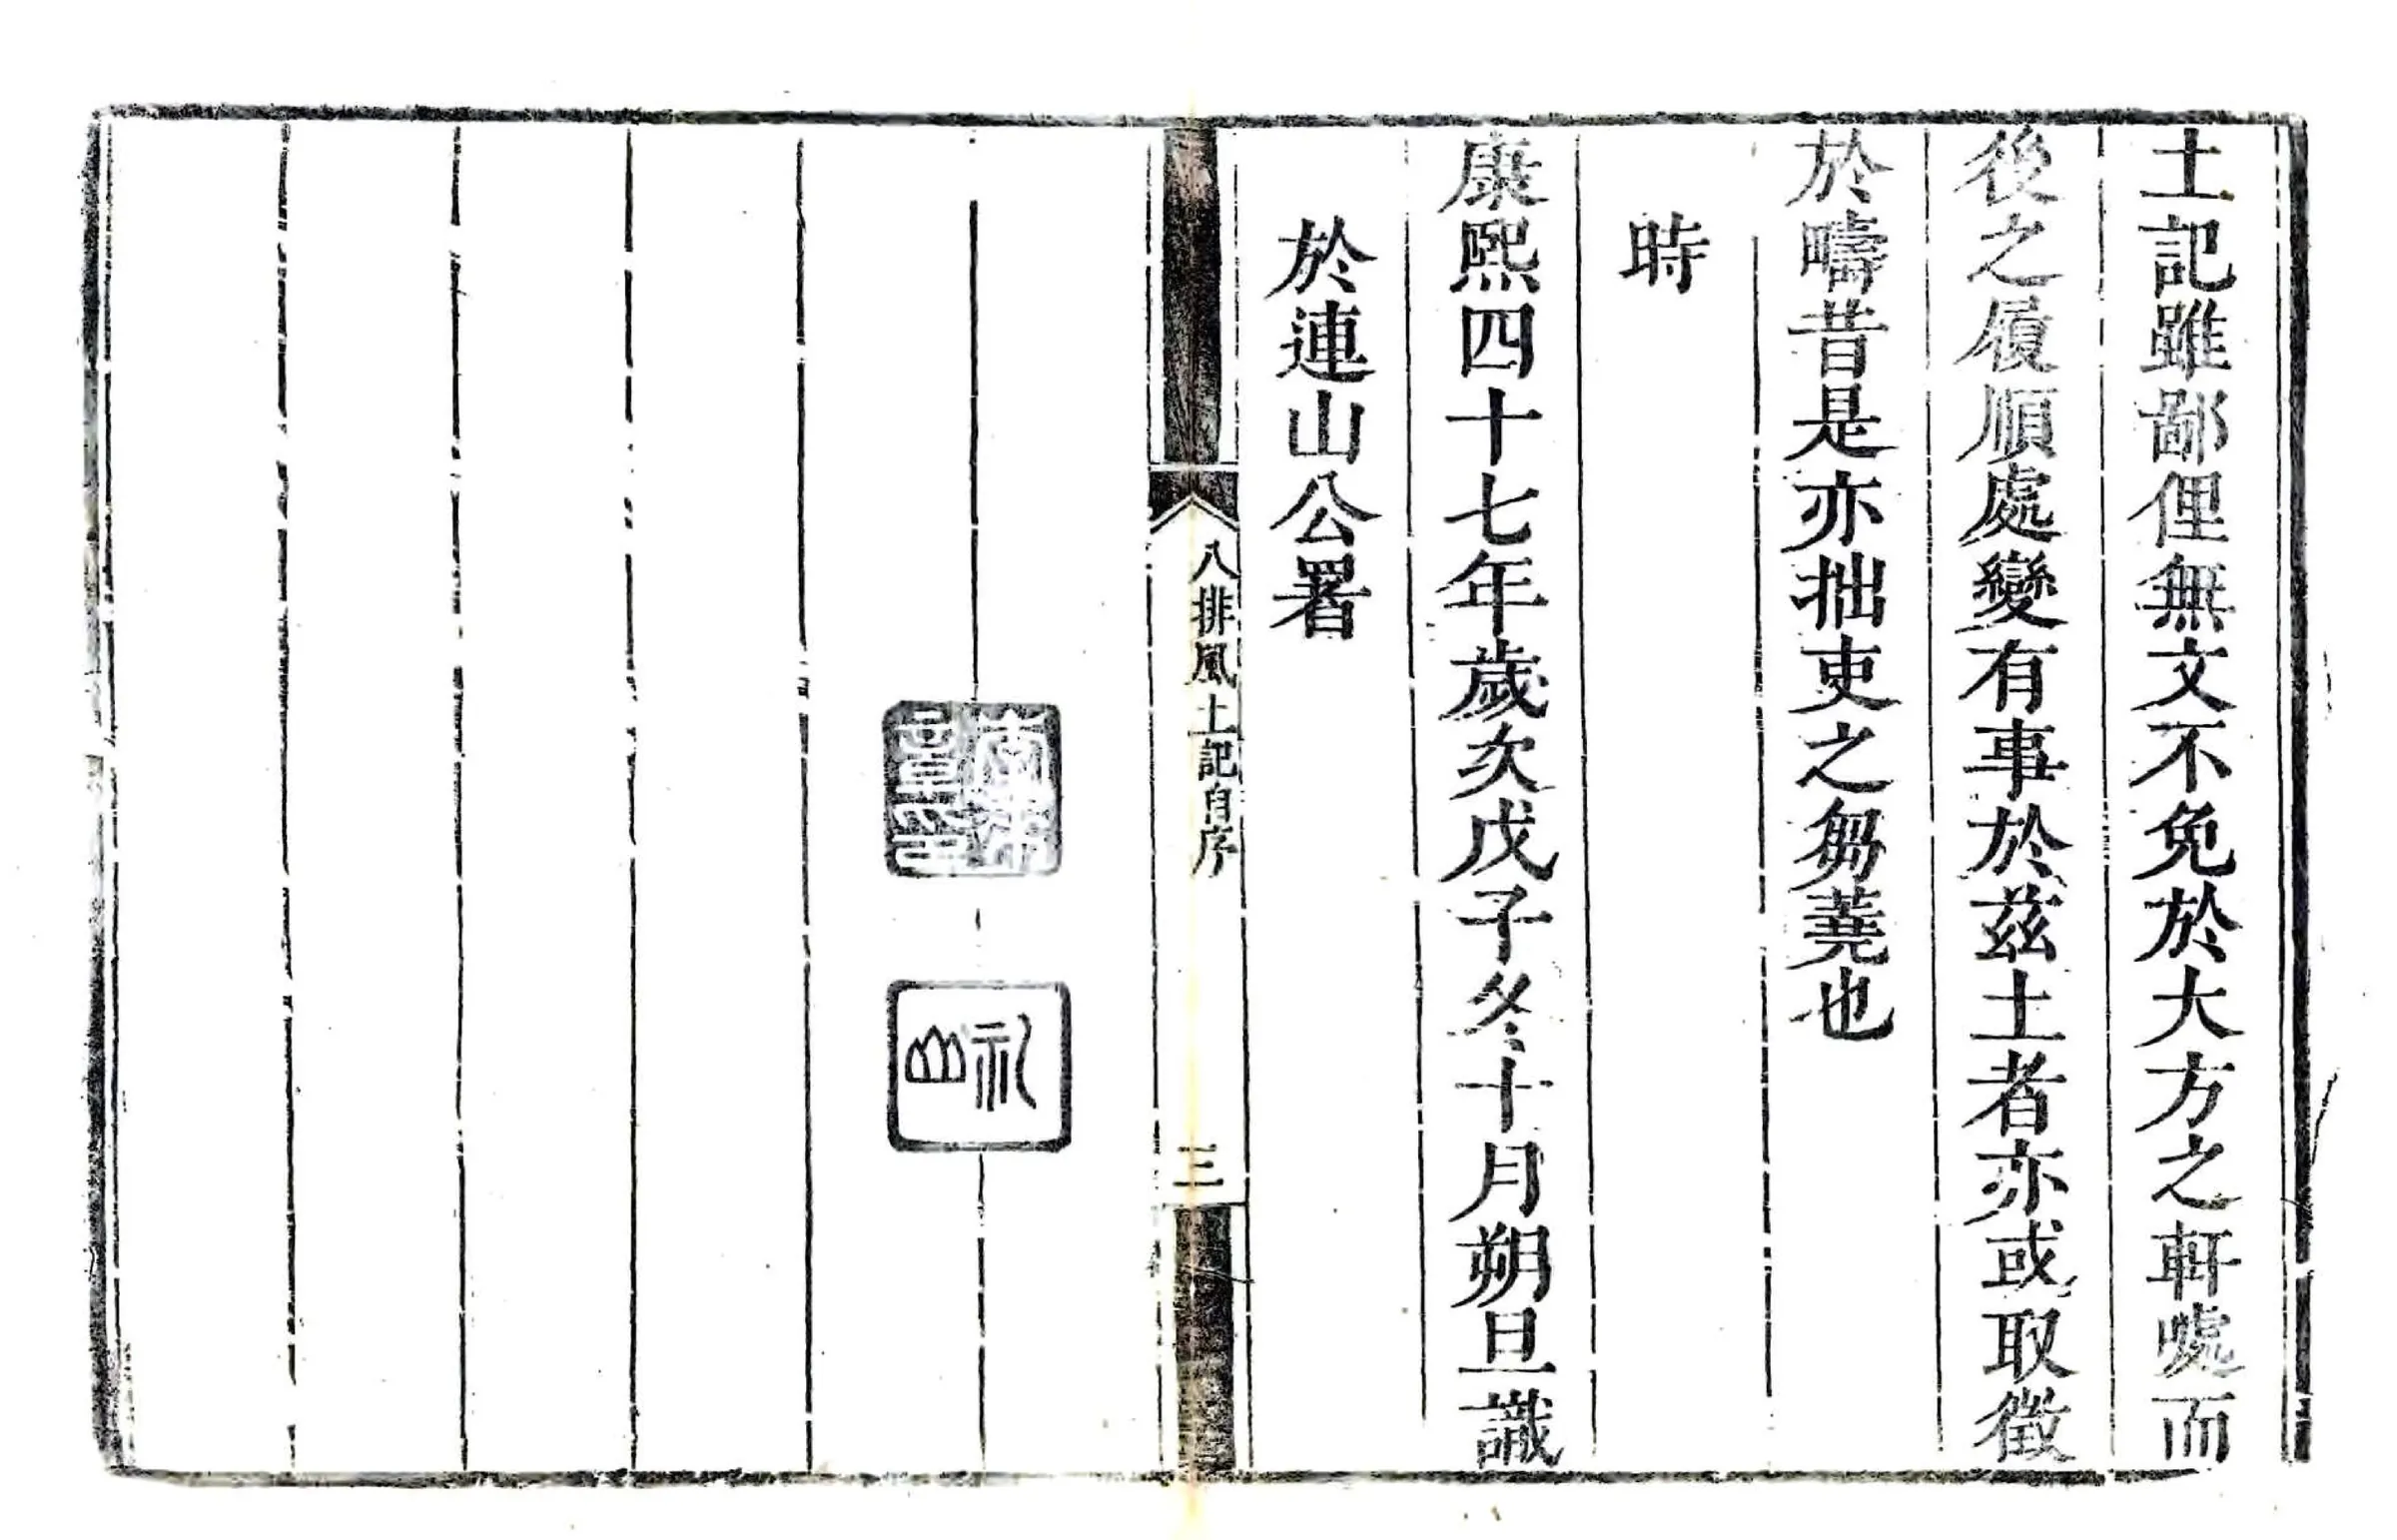 土記雖鄙俚無文不免於大方之軒處而
後之履順處變有事於茲土者亦或取徵
於疇昔是亦拙吏之芻蕘也
時
康熙四十七年歲次戊子冬十月朔旦識
於連山公署
八排風土記自序
三
李來章印
礼山